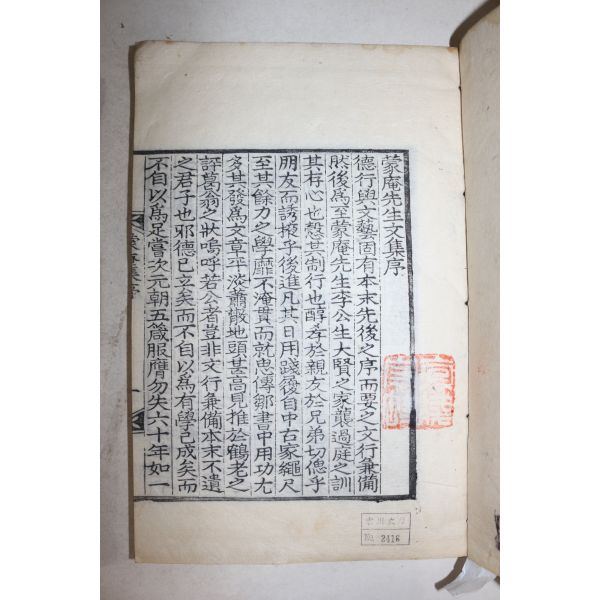 蒙庵先生文集序
德行與文藝固有本末先後之序而要之文行兼備
然後爲至蒙庵先生李公生大賢之家襲過庭之訓
其存心也慤其制行也醇孝於親友於兄弟切偲乎
朋友而誘掖乎後進凡其日用踐履自中古家繩尺
至其餘力之學靡不淹貫而就思傳鄒書中用功尤
多其發爲文章平淡蕭散地頭甚高見推於鶴老之
評葛翁之狀嗚呼若公者豈非文行兼備本末不遺
之君子也耶德已立矣而不自以爲有學已成矣而
不自以爲足嘗次元朝五箴服膺勿失六十年如一
蒙庵集序
一
No. 2416